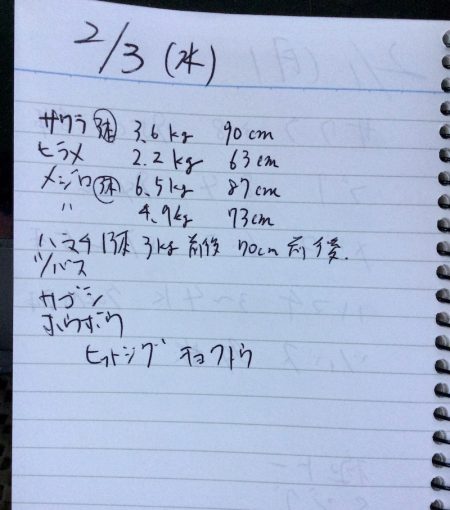 2/3 (水)
サワラ 3.6kg 90cm
ヒラメ 2.2kg 63cm
メジロ 6.5kg 87cm
〃 4.9kg 73cm
ハマチ 3kg 前後 70cm 前後.
ツバス
カゴシ
ホウボウ
ヒットジグ